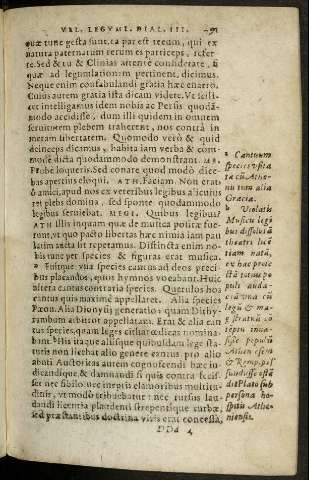 VEL LEGVM. DIAL. III. 91
quæ tunc gesta sunt. ea par est reum, qui ex
natura paternatum rerum es particeps, refer-
re. Sed & tu & Clinias attente considerate, si
quæ ad legumlationem pertinent, dicimus.
Neque enim confabulandi gratia hæc enarro.
Cuius autem gratia ista dicam videte. Vt scili-
cet intelligamus idem nobis ac Persis quodā-
modo accidisse, dum illi quidem in omnem
seruitutem plebem traherent, nos contrà in
meram libertatem. Quomodo verò & quid
deinceps dicamus, habita iam verba & com-
mode dicta quodammodo demonstrant. ME.
Probè loqueris. Sed conare quod modò dice-
bas apertius eloqui. ATH. Faciam. Non erat
ô amici, apud nos ex veteribus legibus alicuius
rei plebs domina, sed sponte quodammodo
legibus seruiebat. MEGI. Quibus legibus?
ATH Illis inquam quæ de musica positæ fue-
runt, vt quo pacto libertas hæc nimia iam pau
latim aucta sit repetamus. Distincta enim no-
bis tunc per species & figuras erat musica.
ᵃ Fuitque vna species cantus ad deos preci-
bus placandos, quos hymnos vocabant. Huic
altera cantus contraria species. Querulos hos
cantus quis maximè appellaret. Alia species
Pæon. Alia Dionysij generatio: quam Dithy-
rambum arbitror appellatam. Erat & alia can
tus species, quam leges citharœdicas nomina-
bant. ᵇ His itaque aliisque quibusdam lege sta-
tutis non licebat alio genere cantus pro alio
abuti Autoritas autem cognoscendi hæc iu-
dicandique, & damnandi si quis contra fecis-
set nec sibilo, nec ineptis clamoribus multitu-
ditis, vt modò tribuebatur: nec rursus lau-
dandi licentia plaudenti strepentique turbæ,
sed præstantibus doctrina viris erat concessa,
DDd 4
ᵃ Cantuum
species vsita
tæ cū Athe-
nis tum alia
Græcia.
ᵇ Violatis
Musicæ legi
bus dissoluta
theatri licē
tiam natā,
ex hac pro
stā totius po
puli auda-
ciā vna cū
legū & ma-
gistratuū cō
temptu inua-
sisse populū